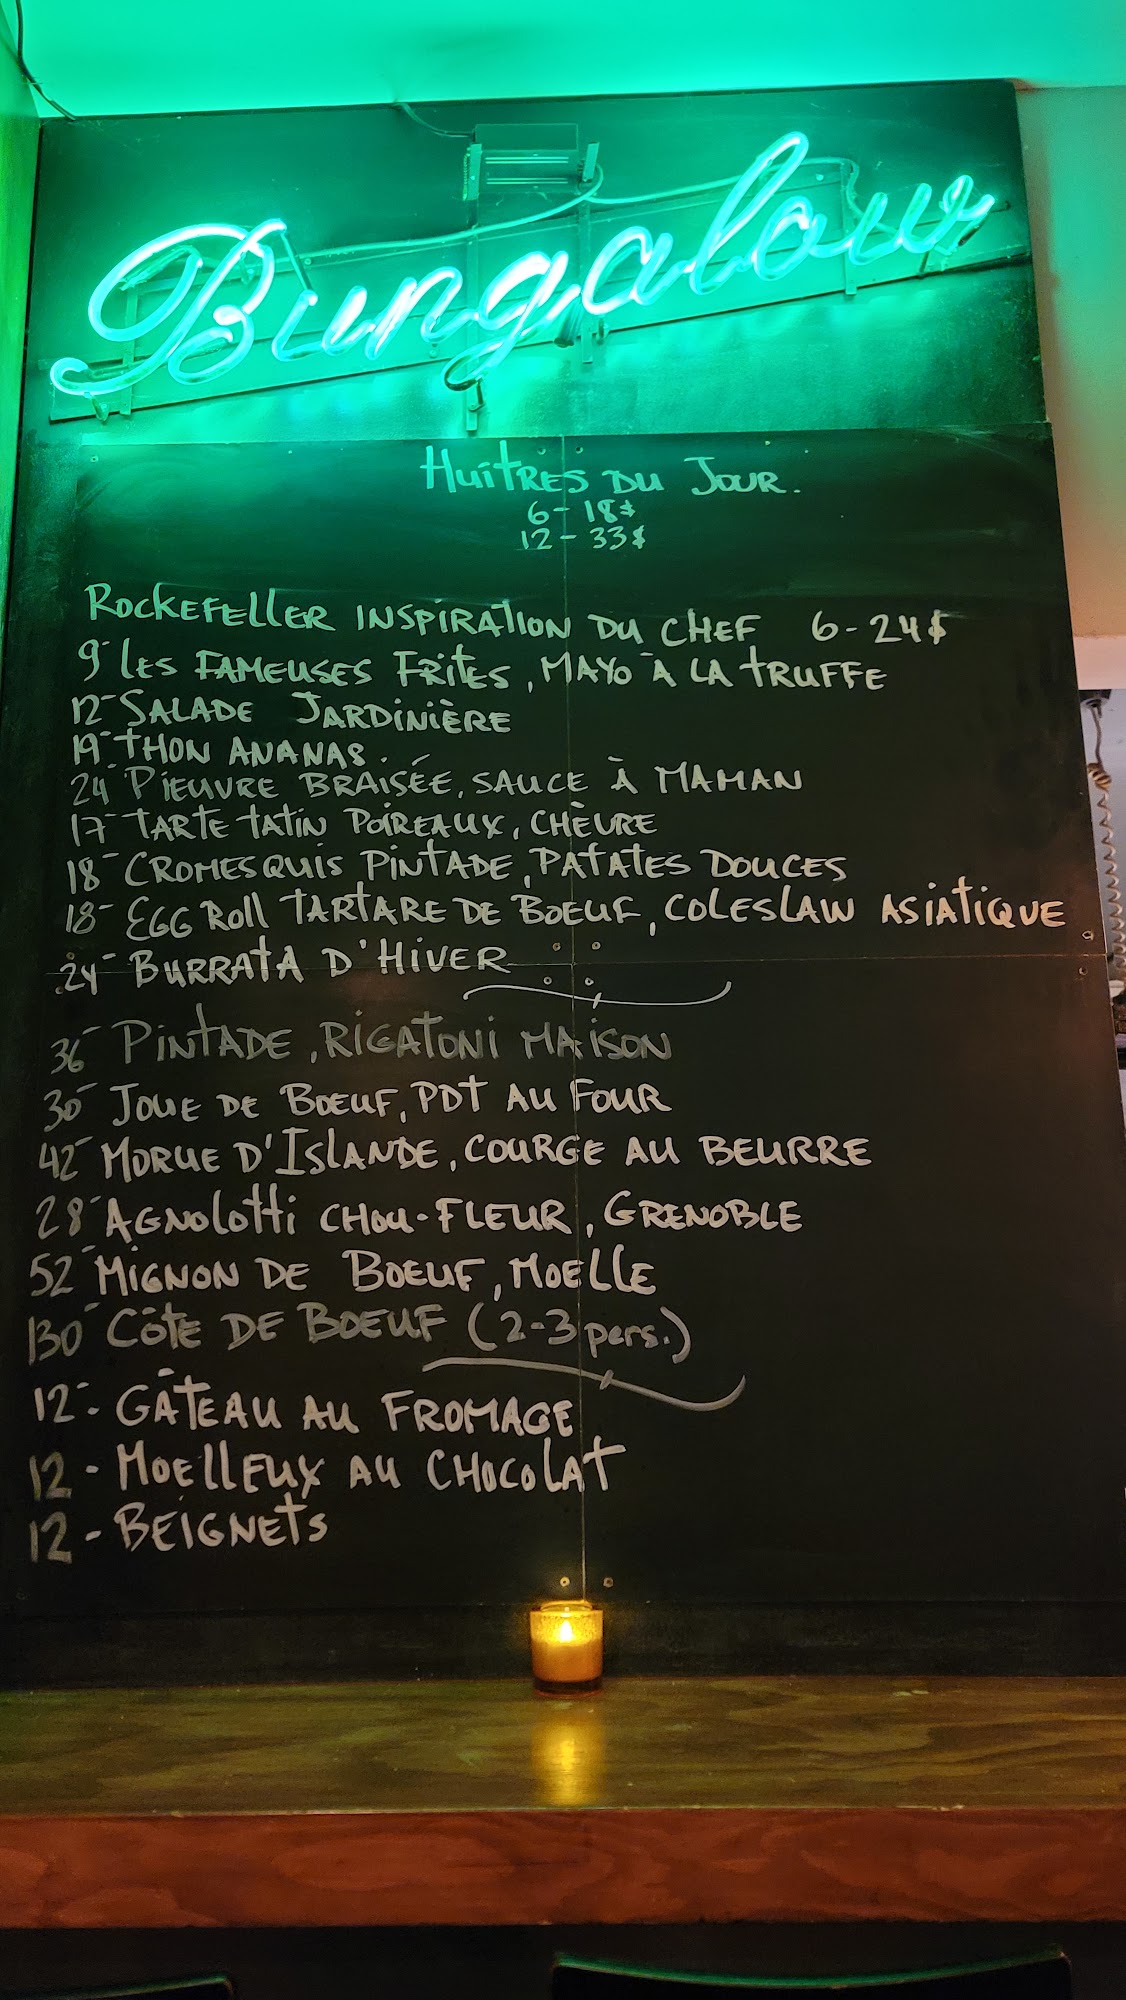 Bungalow
Huîtres du Jour.
6- 18$
12- 33$
Rockefeller inspiration du chef 6-24$
9- Les fameuses frites, mayo à la truffe
12- Salade Jardinière
19- Thon ananas.
24- Pieuvre braisée, sauce à maman
17- Tarte tatin poireaux, chèvre
18- Cromesquis pintade, patates douces
18- Egg Roll tartare de boeuf, coleslaw asiatique
24- Burrata d'hiver
36- Pintade, rigatoni maison
30- Joue de boeuf, PDT au four
42- Morue d'Islande, courge au beurre
28- Agnolotti chou-fleur, Grenoble
52- Mignon de boeuf, moelle
130- Côte de boeuf (2-3 pers.)
12- Gâteau au fromage
12- Moelleux au chocolat
12- Beignets